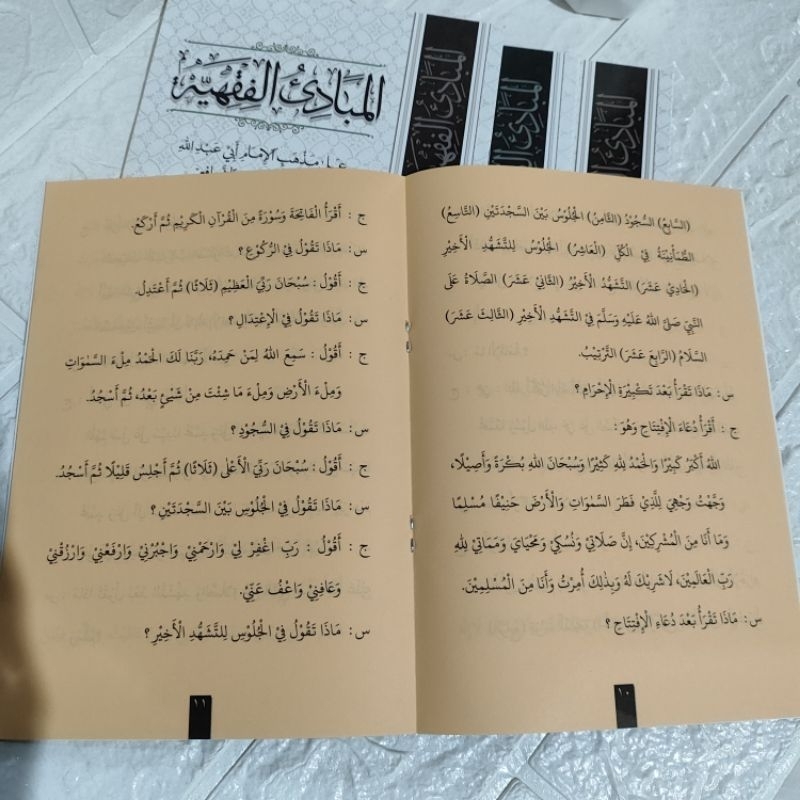 المَبَادِئُ الفِقْهِيَّة
عَلَى مَذْهَبِ الإِمَامِ أَبِي عَبْدِ اللهِ
المَبَادِئُ الفِقْهِيَّة
المَبَادِئُ
المَبَادِئُ
(السَّابِعُ) السُّجُوْدُ (الثَّامِنُ) الْجُلُوْسُ بَيْنَ السَّجْدَتَيْنِ (التَّاسِعُ)
الطُّمَأْنِيْنَةُ فِي الْكُلِّ (الْعَاشِرُ) الْجُلُوْسُ لِلتَّشَهُّدِ الْأَخِيْرِ
(الْحَادِيْ عَشَرَ) التَّشَهُّدُ الْأَخِيْرُ (الثَّانِيْ عَشَرَ) الصَّلَاةُ عَلَى
النَّبِيِّ صَلَّى اللهُ عَلَيْهِ وَسَلَّمَ فِي التَّشَهُّدِ الْأَخِيْرِ (الثَّالِثَ عَشَرَ)
السَّلَامُ (الرَّابِعَ عَشَرَ) التَّرْتِيْبُ.
س : مَاذَا تَقْرَأُ بَعْدَ تَكْبِيْرَةِ الْإِحْرَامِ ؟
ج : أَقْرَأُ دُعَاءَ الْإِفْتِتَاحِ وَهُوَ :
اللهُ أَكْبَرُ كَبِيْرًا وَالْحَمْدُ لِلهِ كَثِيْرًا وَسُبْحَانَ اللهِ بُكْرَةً وَأَصِيْلًا،
وَجَّهْتُ وَجْهِيَ لِلَّذِيْ فَطَرَ السَّمٰوَاتِ وَالْأَرْضَ حَنِيْفًا مُسْلِمًا
وَمَا أَنَا مِنَ الْمُشْرِكِيْنَ، إِنَّ صَلَاتِيْ وَنُسُكِيْ وَمَحْيَايَ وَمَمَاتِيْ لِلهِ
رَبِّ الْعَالَمِيْنَ، لَاشَرِيْكَ لَهُ وَبِذٰلِكَ أُمِرْتُ وَأَنَا مِنَ الْمُسْلِمِيْنَ.
س : مَاذَا تَقْرَأُ بَعْدَ دُعَاءِ الْإِفْتِتَاحِ ؟
١٠
ج : أَقْرَأُ الْفَاتِحَةَ وَسُوْرَةً مِنَ الْقُرْآنِ الْكَرِيْمِ ثُمَّ أَرْكَعُ.
س : مَاذَا تَقُوْلُ فِي الرُّكُوْعِ ؟
ج : أَقُوْلُ : سُبْحَانَ رَبِّيَ الْعَظِيْمِ (ثَلَاثًا) ثُمَّ أَعْتَدِلُ.
س : مَاذَا تَقُوْلُ فِي الْإِعْتِدَالِ ؟
ج : أَقُوْلُ : سَمِعَ اللهُ لِمَنْ حَمِدَهُ، رَبَّنَا لَكَ الْحَمْدُ مِلْءَ السَّمٰوَاتِ
وَمِلْءَ الْأَرْضِ وَمِلْءَ مَا شِئْتَ مِنْ شَيْئٍ بَعْدُ، ثُمَّ أَسْجُدُ.
س : مَاذَا تَقُوْلُ فِي السُّجُوْدِ ؟
ج : أَقُوْلُ : سُبْحَانَ رَبِّيَ الْأَعْلٰى (ثَلَاثًا) ثُمَّ أَجْلِسُ قَلِيْلًا ثُمَّ أَسْجُدُ.
س : مَاذَا تَقُوْلُ فِي الْجُلُوْسِ بَيْنَ السَّجْدَتَيْنِ ؟
ج : أَقُوْلُ : رَبِّ اغْفِرْ لِيْ وَارْحَمْنِيْ وَاجْبُرْنِيْ وَارْفَعْنِيْ وَارْزُقْنِيْ
وَعَافِنِيْ وَاعْفُ عَنِّيْ.
س : مَاذَا تَقُوْلُ فِي الْجُلُوْسِ لِلتَّشَهُّدِ الْأَخِيْرِ ؟
١١